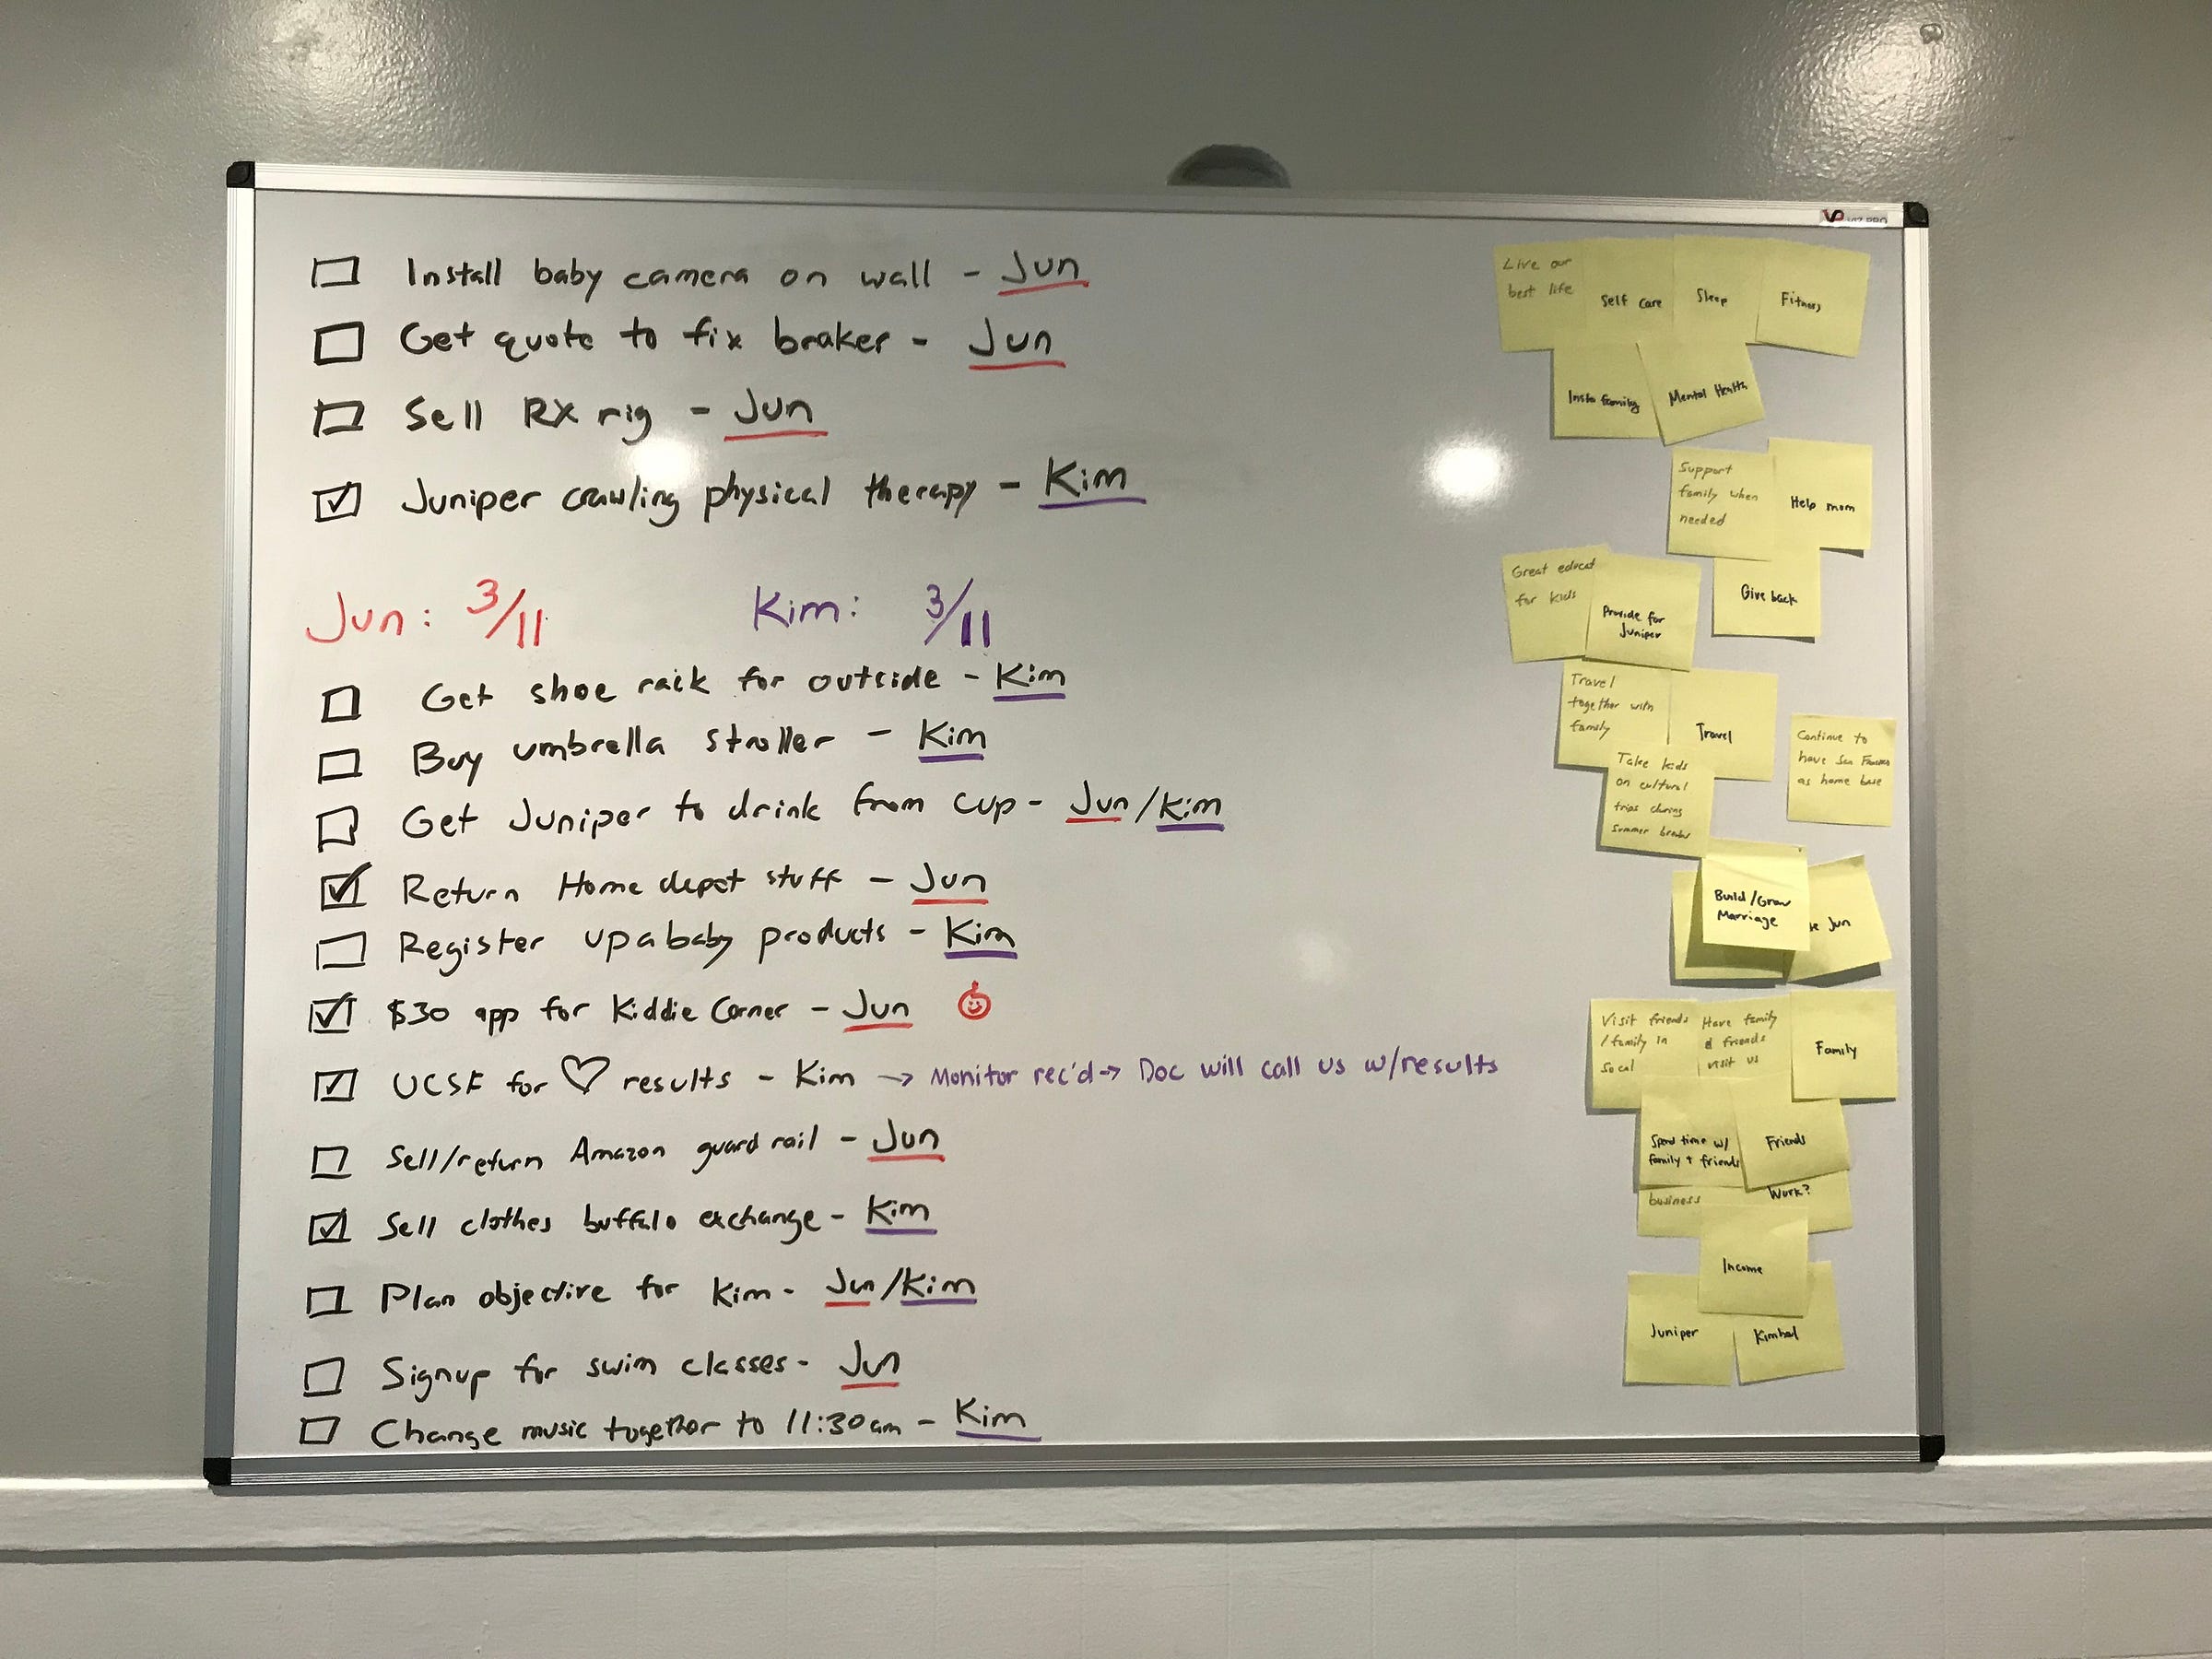 Install baby camera on wall - Jun
Get quote to fix braker - Jun
Sell RX rig - Jun
Juniper crawling physical therapy - Kim
Jun: 3/11 Kim: 3/11
Get shoe rack for outside - Kim
Buy umbrella stroller - Kim
Get Juniper to drink from cup - Jun/Kim
Return Home depot stuff - Jun
Register upababy products - Kim
$30 app for Kiddie Corner - Jun
UCSF for ♡ results - Kim → Monitor rec'd → Doc will call us w/results
Sell/return Amazon guard rail - Jun
Sell clothes buffalo exchange - Kim
Plan objective for Kim - Jun/Kim
Signup for swim classes - Jun
Change music together to 11:30am - Kim
Live our
best life
Self care
Sleep
Fitness
Insta family
Mental Health
Support
family when
needed
Help mom
Give back
Great educat
for kids
Provide for
Juniper
Travel
together with
family
Travel
Take kids
on cultural
trips during
summer breaks
Continue to
have San
as home base
Build/Grow
Marriage
Jun
Visit friends
/family in
socal
Have family
& friends
visit us
Family
Spend time w/
family + friends
Friends
business
Work?
Income
Juniper